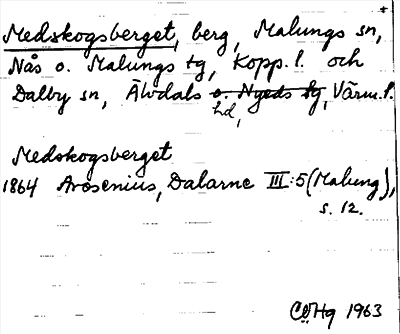 Medskogsberget, berg, Malungs sn,
Nås o. Malungs tg, Kopp. l. och
Dalby sn, Älvdals o. Nyeds tg, Värm. l.
hd,
Medskogsberget
1864 Arosenius, Dalarne III:5 (Malung),
s. 12.
1963